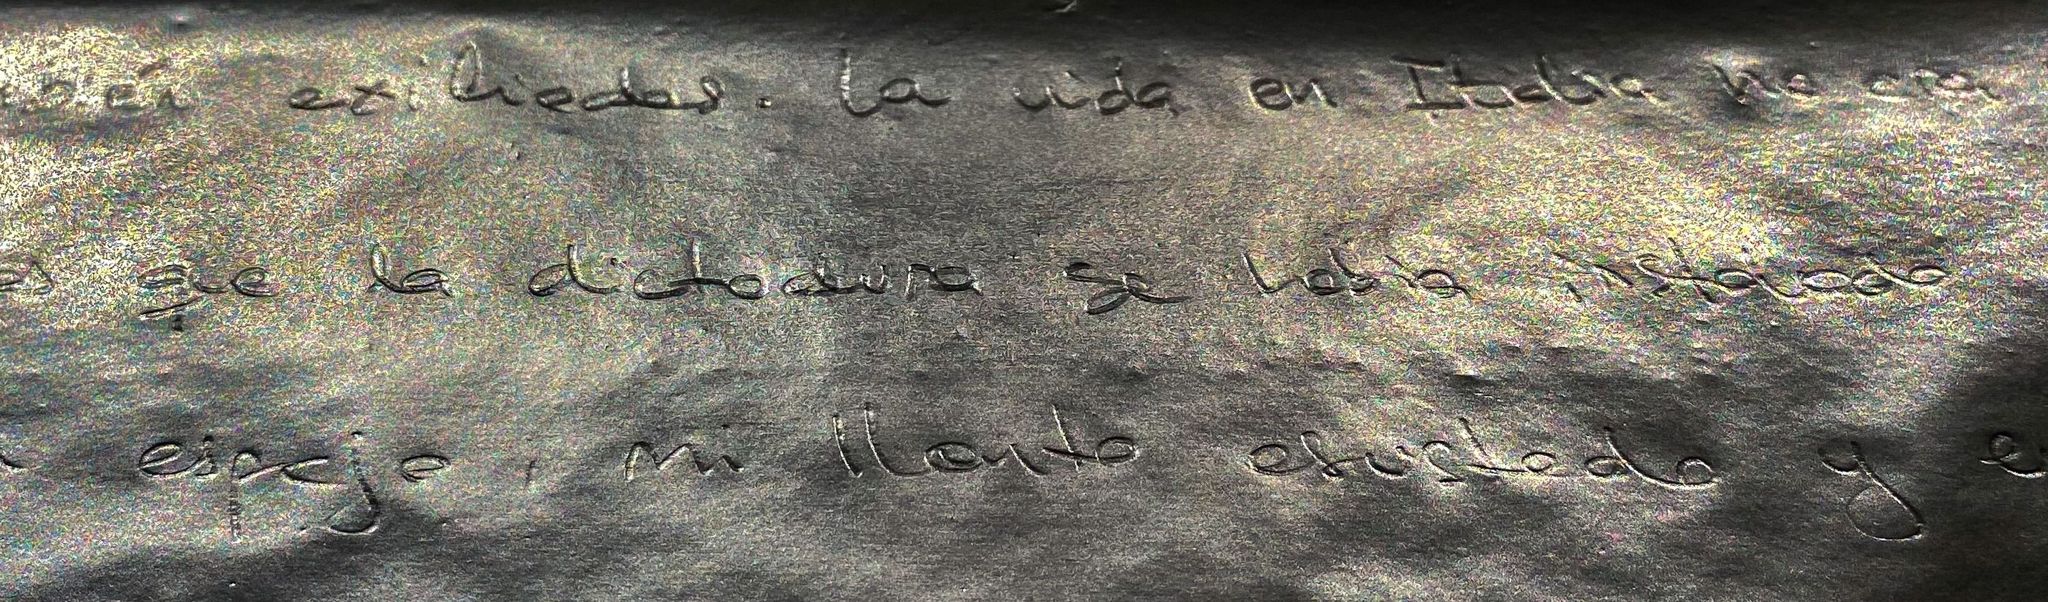 exiliedas. La vida en Italia no era
es que la dictadura se había instaurado
espejo, mi llanto asustado y